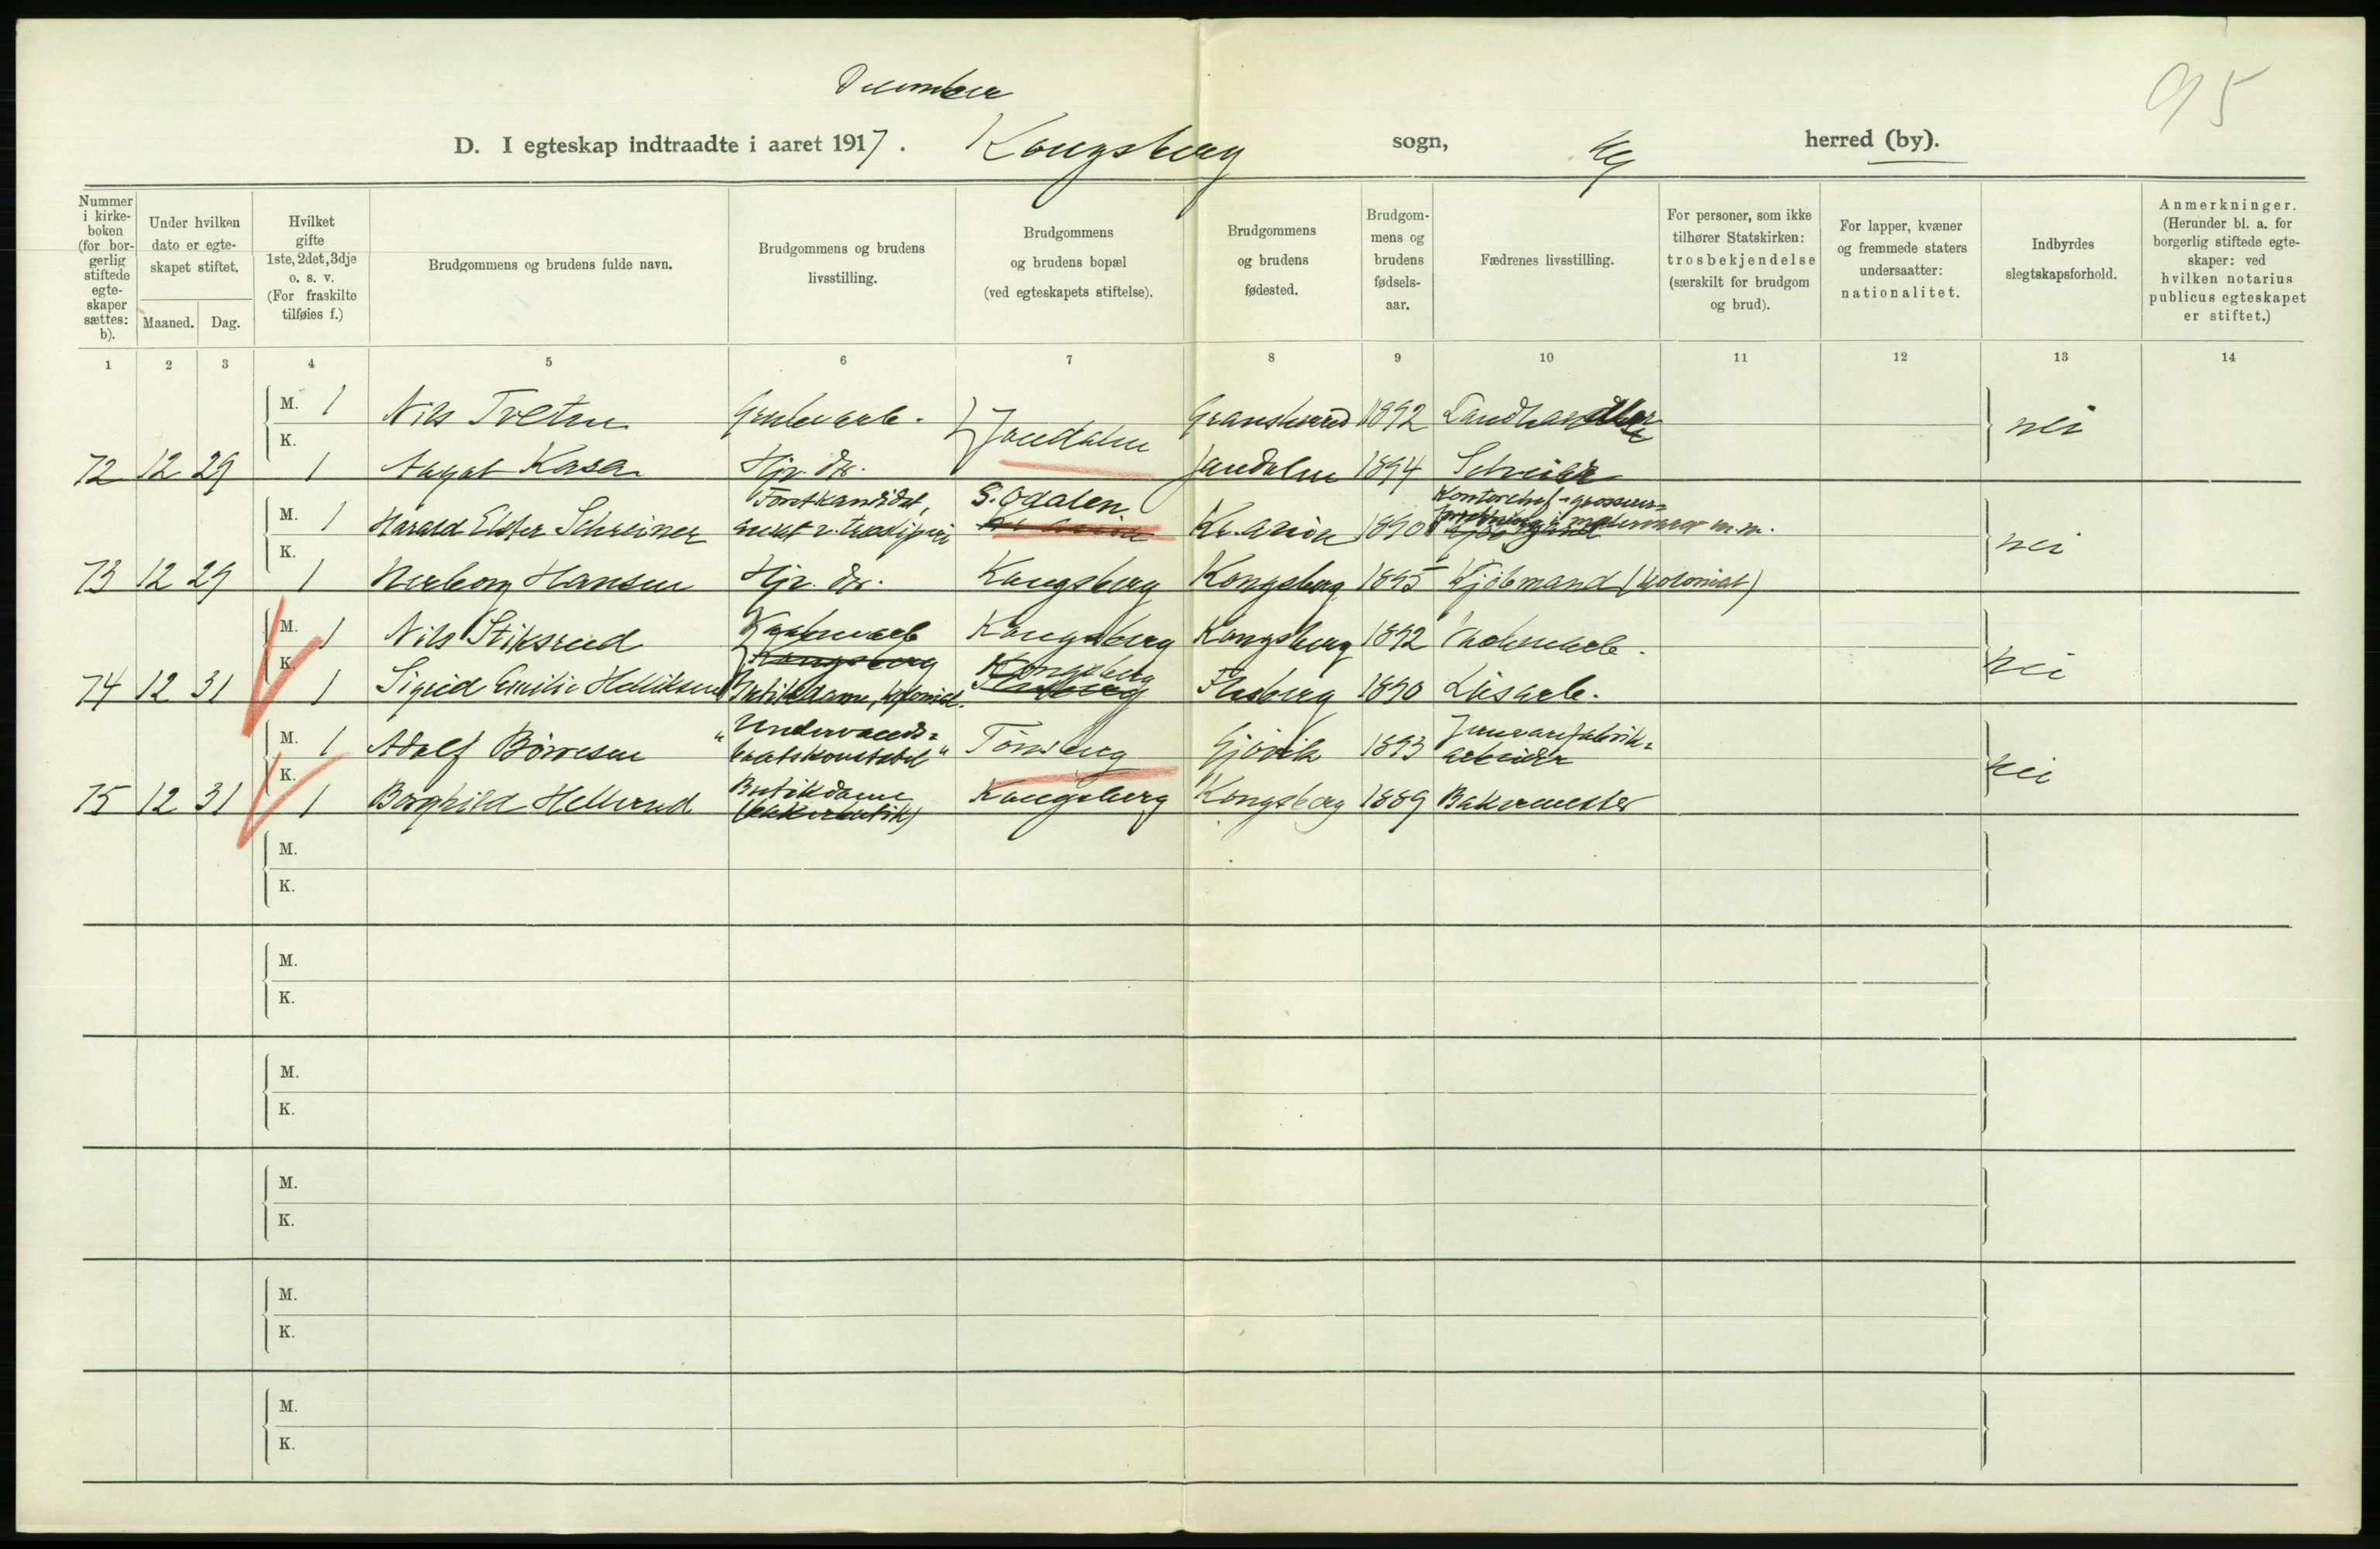 December
95
D. I egteskap indtraadte i aaret 1917. Kongsberg sogn, Kg herred (by).
Nummer i kirkeboken (for borgerlig stiftede egteskaper sættes: b).
Under hvilken dato er egteskapet stiftet.
Maaned. Dag.
Hvilket gifte 1ste, 2det, 3dje o. s. v. (For fraskilte tilføies f.)
Brudgommens og brudens fulde navn.
Brudgommens og brudens livsstilling.
Brudgommens og brudens bopæl (ved egteskapets stiftelse).
Brudgommens og brudens fødested.
Brudgommens og brudens fødselsaar.
Fædrenes livsstilling.
For personer, som ikke tilhører Statskirken: trosbekjendelse (særskilt for brudgom og brud).
For lapper, kvæner og fremmede staters undersaatter: nationalitet.
Indbyrdes slegtskapsforhold.
Anmerkninger. (Herunder bl. a. for borgerlig stiftede egteskaper: ved hvilken notarius publicus egteskapet er stiftet.)
1 2 3 4 5 6 7 8 9 10 11 12 13 14
M. 1 Nils Tveten Grubearb. } Jondalen Gransherred 1892 Landhandler nei
K. 72 12 29 1 Aagot Kasa Hjr. dtr. Jondalen 1894
M. 1 Harald Elster Schreiner Forstkandidat, S. Odalen Kr.ania 1890 Kontorchef nei
K. 73 12 29 1 Hansen Hjr. dtr. Kongsberg Kongsberg 1895 Kjöbmand (kolonial)
M. 1 Nils Stiksrud Kongsberg Kongsberg 1892 nei
Kongsberg Kongsberg
K. 74 12 31 1 Sigrid Emilie Helliksen Butikdame, kolonial. Flesberg Flesberg 1890 Løsarb.
M. 1 Adolf Börresen "Undervands=baatskonstabel" Tönsberg Gjövik 1893 Jernvarefabrik=arbeider nei
K. 75 12 31 1 Borghild Hellerud Butikdame (bakerbutik) Kongsberg Kongsberg 1889 Bakermester
M.
K.
M.
K.
M.
K.
M.
K.
M.
K.
M.
K.